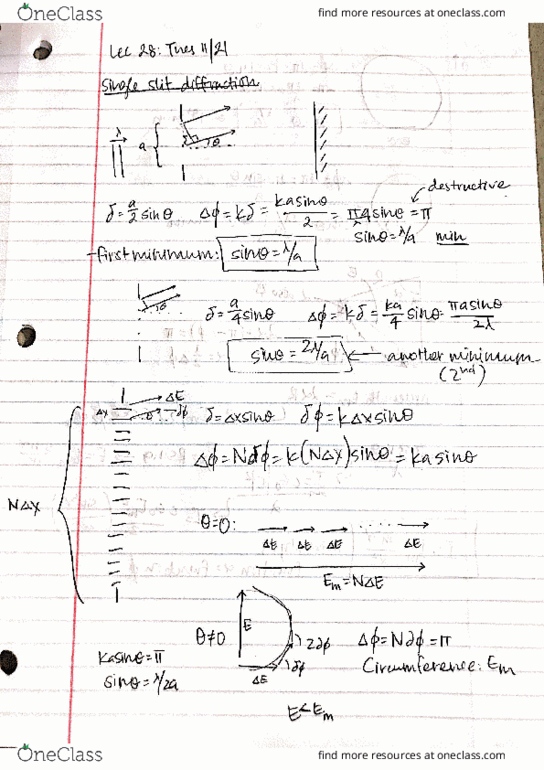 OneClass
find more resources at oneclass.com
Lec 28: Tues 11/21
single slit diffraction
λ a θ
destructive
δ = a/2 sinθ Δφ = kδ = kasinθ/2 = πasinθ/λ = π
sinθ = λ/a min
-first minimum: sinθ = λ/a
θ
δ = a/4 sinθ Δφ = kδ = ka/4 sinθ = πasinθ/2λ
sinθ = 2λ/a ← another minimum
(2nd)
ΔE
Δx θ δφ δ = Δxsinθ δφ = kΔxsinθ
Δφ = Nδφ = k(NΔx)sinθ = kasinθ
NΔx
θ=0:
ΔE ΔE ΔE ΔE
Em = NΔE
θ≠0 E 2δφ Δφ = Nδφ = π
kasinθ = π δφ Circumference: Em
sinθ = λ/2a ΔE
E<Em
OneClass
find more resources at oneclass.com